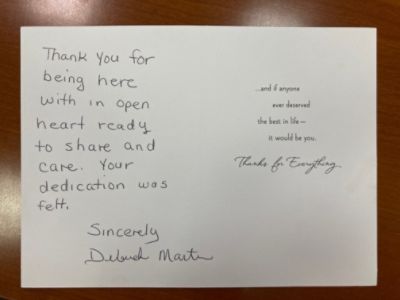 Thank you for
being here
with in open
heart ready
to share and
care. Your
dedication was
felt.
Sincerely
Deborah Martin
...and if anyone
ever deserved
the best in life—
it would be you.
Thanks for Everything